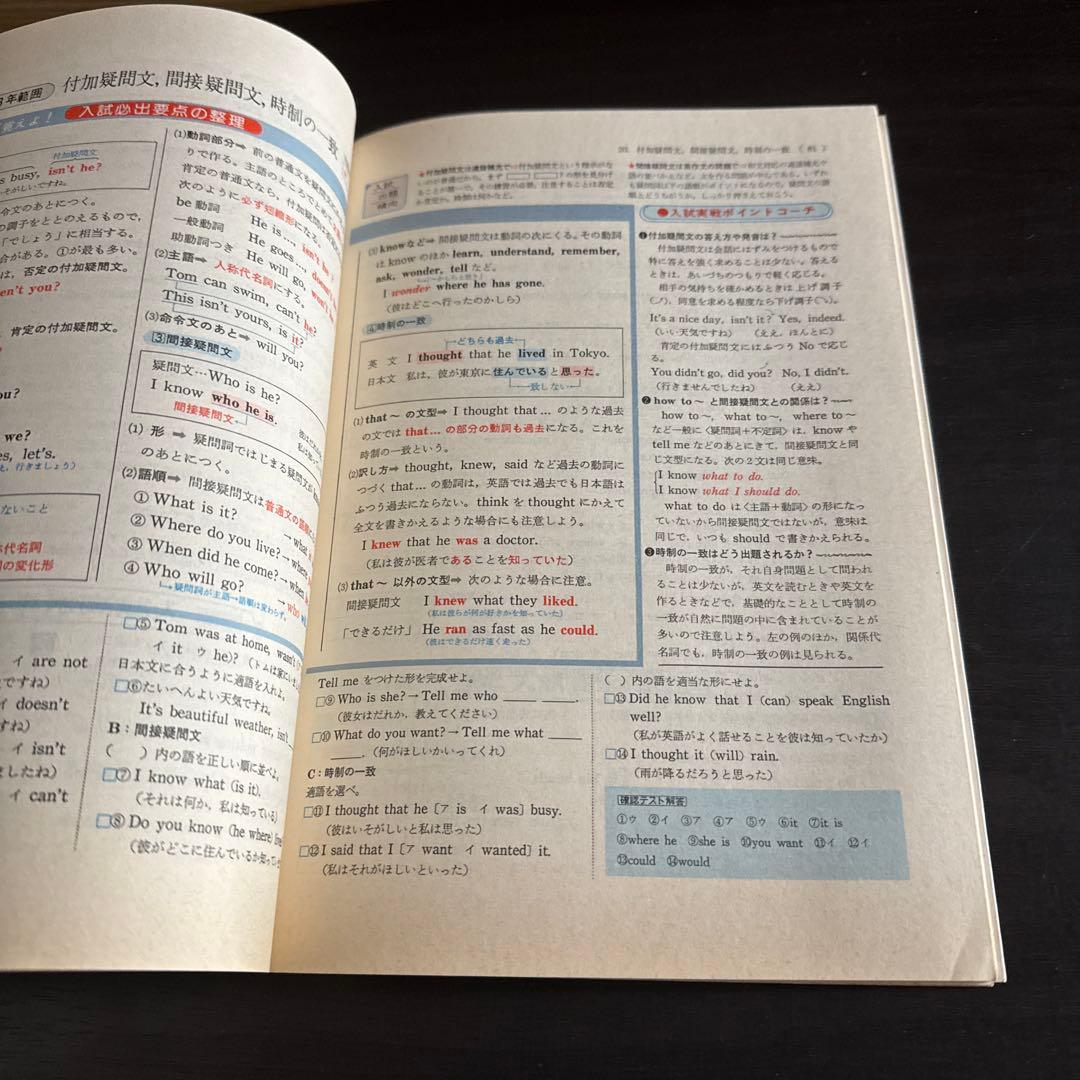 3年範囲
付加疑問文, 間接疑問文, 時制の一致
覚えよ！ 入試必出要点の整理
付加疑問文
s busy, isn't he?
がしいですね)
令文のあとにつく。
の調子をととのえるもので,
「でしょう」に相当する。
合がある。①が最も多い。
は, 否定の付加疑問文。
en't you?
肯定の付加疑問文。
ou?
we?
es, let's.
え, 行きましょう)
ないこと
称代名詞
の変化形
(1)動詞部分➡ 前の普通文を疑問文
りで作る。主語のところでとめて
肯定の普通文なら, 付加疑問は
次のように必ず短縮形になる。
be 動詞 He is …, isn't he?
一般動詞 He goes …,
助動詞つき He will go,
(2)主語➡ 人称代名詞にする。
Tom can swim, can't he?
This isn't yours, is it?
(3)命令文のあと➡ will you?
3 間接疑問文
疑問文…Who is he?
I know who he is.
間接疑問文
(1) 形 ➡ 疑問詞ではじまる疑問文が
のあとにつく。
(2)語順➡ 間接疑問文は普通文の語順
① What is it? →
② Where do you live? → where
③ When did he come? → when
④ Who will go? → who
疑問詞が主語→語順は変わらず。
イ are not
ですね)
イ doesn't
すね)
イ isn't
ましたね)
イ can't
□⑤ Tom was at home, wasn't
イ it ウ he)? (トムは家に
日本文に合うように適語を入れよ。
□⑥たいへんよい天気ですね。
It's beautiful weather, isn't
B : 間接疑問文
( )内の語を正しい順に並べよ。
□⑦ I know what (is it).
(それは何か, 私は知っている)
□⑧ Do you know (he where)
(彼がどこに住んでいるか知って
20. 付加疑問文, 間接疑問文, 時制の一致 ( 81 )
入試
出題
傾向
(3) knowなど➡ 間接疑問文は動詞の次にくる。その動詞
は know のほか learn, understand, remember,
ask, wonder, tell など。
I wonder where he has gone.
(彼はどこへ行ったのかしら)
4 時制の一致
どちらも過去
英 文 I thought that he lived in Tokyo.
日本文 私は, 彼が東京に住んでいると思った。
一致しない
(1)that 〜 の文型➡ I thought that … のような過去
の文では that… の部分の動詞も過去になる。これを
時制の一致という。
(2)訳し方➡ thought, knew, said など過去の動詞に
つづく that… の動詞は, 英語では過去でも日本語は
ふつう過去にならない。think を thought にかえて
全文を書きかえるような場合にも注意しよう。
I knew that he was a doctor.
(私は彼が医者であることを知っていた)
(3) that〜 以外の文型➡ 次のような場合に注意。
間接疑問文 I knew what they liked.
(私は彼らが何が好きかを知っていた)
「できるだけ」 He ran as fast as he could.
(彼はできるだけ速く走った)
●入試実戦ポイントコーチ
❶付加疑問文の答え方や発音は？
付加疑問文は会話にはずみをつけるもので
特に答えを強く求めることは少ない。答える
ときは, あいづちのつもりで軽く応じる。
相手の気持ちを確かめるときは上げ調子
(⤴), 同意を求める程度なら下げ調子(⤵)。
It's a nice day, isn't it? Yes, indeed.
(いい天気ですね) (ええ, ほんとに)
肯定の付加疑問文にはふつう No で応じ
る。
You didn't go, did you? No, I didn't.
(行きませんでしたね) (ええ)
❷ how to〜 と間接疑問文との関係は？
how to〜, what to〜, where to〜
など一般に〈疑問詞+不定詞〉は, know や
tell me などのあとにきて, 間接疑問文と同
じ文型になる。次の2文は同じ意味。
I know what to do.
I know what I should do.
what to do は〈主語+動詞〉の形になっ
ていないから間接疑問文ではないが, 意味は
同じで, いつも should で書きかえられる。
❸時制の一致はどう出題されるか？
時制の一致が, それ自身問題として問われ
ることは少ないが, 英文を読むときや英文を
作るときなどで, 基礎的なこととして時制の
一致が自然に問題の中に含まれていることが
多いので注意しよう。左の例のほか, 関係代
名詞でも, 時制の一致の例は見られる。
Tell me をつけた形を完成せよ。
□⑨ Who is she? → Tell me who ____ ____.
(彼女はだれか, 教えてください)
□⑩ What do you want? → Tell me what ____
____. (何がほしいかいってくれ)
C : 時制の一致
適語を選べ。
□⑪ I thought that he〔ア is イ was〕busy.
(彼はいそがしいと私は思った)
□⑫ I said that I〔ア want イ wanted〕it.
(私はそれがほしいといった)
( )内の語を適当な形にせよ。
□⑬ Did he know that I (can) speak English
well?
(私が英語がよく話せることを彼は知っていたか)
□⑭ I thought it (will) rain.
(雨が降るだろうと思った)
確認テスト解答
①ウ ②イ ③ア ④ア ⑤ウ ⑥it ⑦it is
⑧where he ⑨she is ⑩you want ⑪イ ⑫イ
⑬could ⑭would